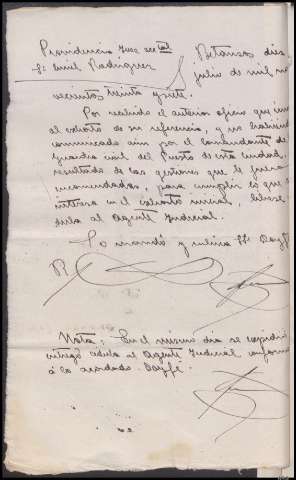 Providencia Juez
Sr. Emil Rodriguez
Betanzos diez
julio de mil no
vecientos treinta y siete.
Por recibido el anterior oficio que
al exhorto de su referencia, y no habiendo
comunicado aún por el comandante de
guardia civil del Puesto de esta ciudad,
resultado de las gestiones que le fueron
encomendadas, para cumplir lo que
interesa en el exhorto inicial, líbrese
dula al Agente Judicial.
Lo mandó y rubrica SSª Doy fé
Nota: En el mismo dia se expidió
entregó cédula al Agente Judicial conforme
á lo acordado. Doy fé.